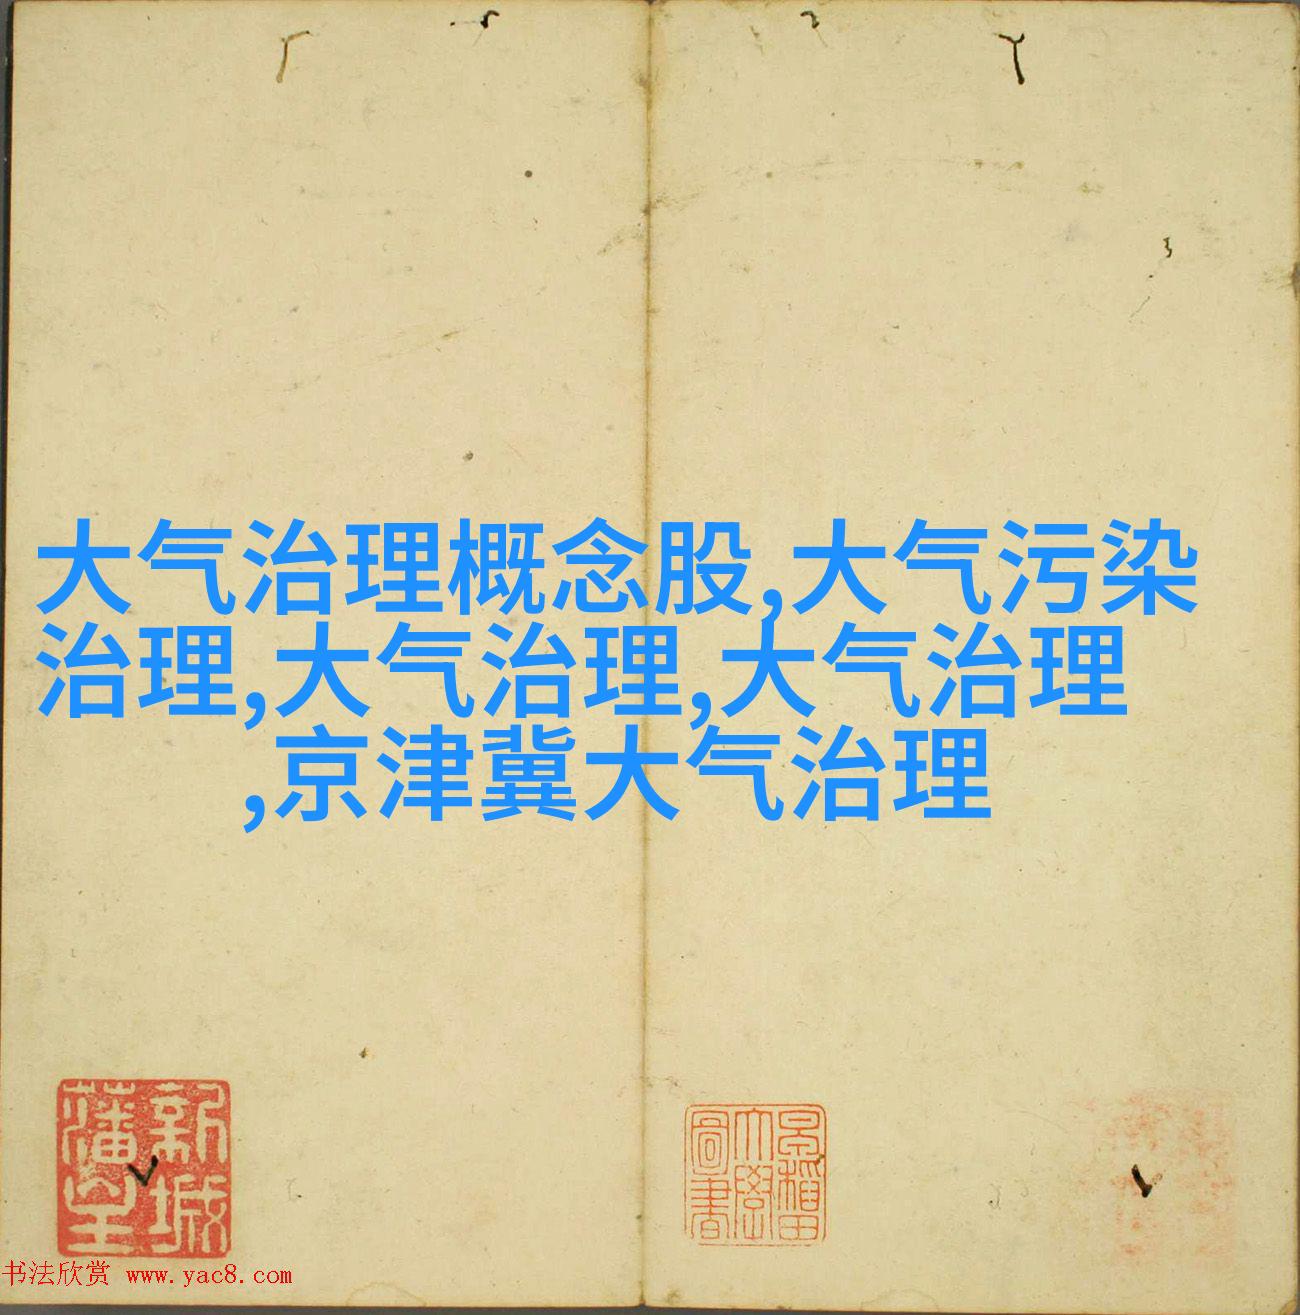 大气治理概念股,大气污染
治理,大气治理,大气治理
,京津冀大气治理
新城
藩室
早稻田
大學
圖書
书法欣赏 www.yac8.com